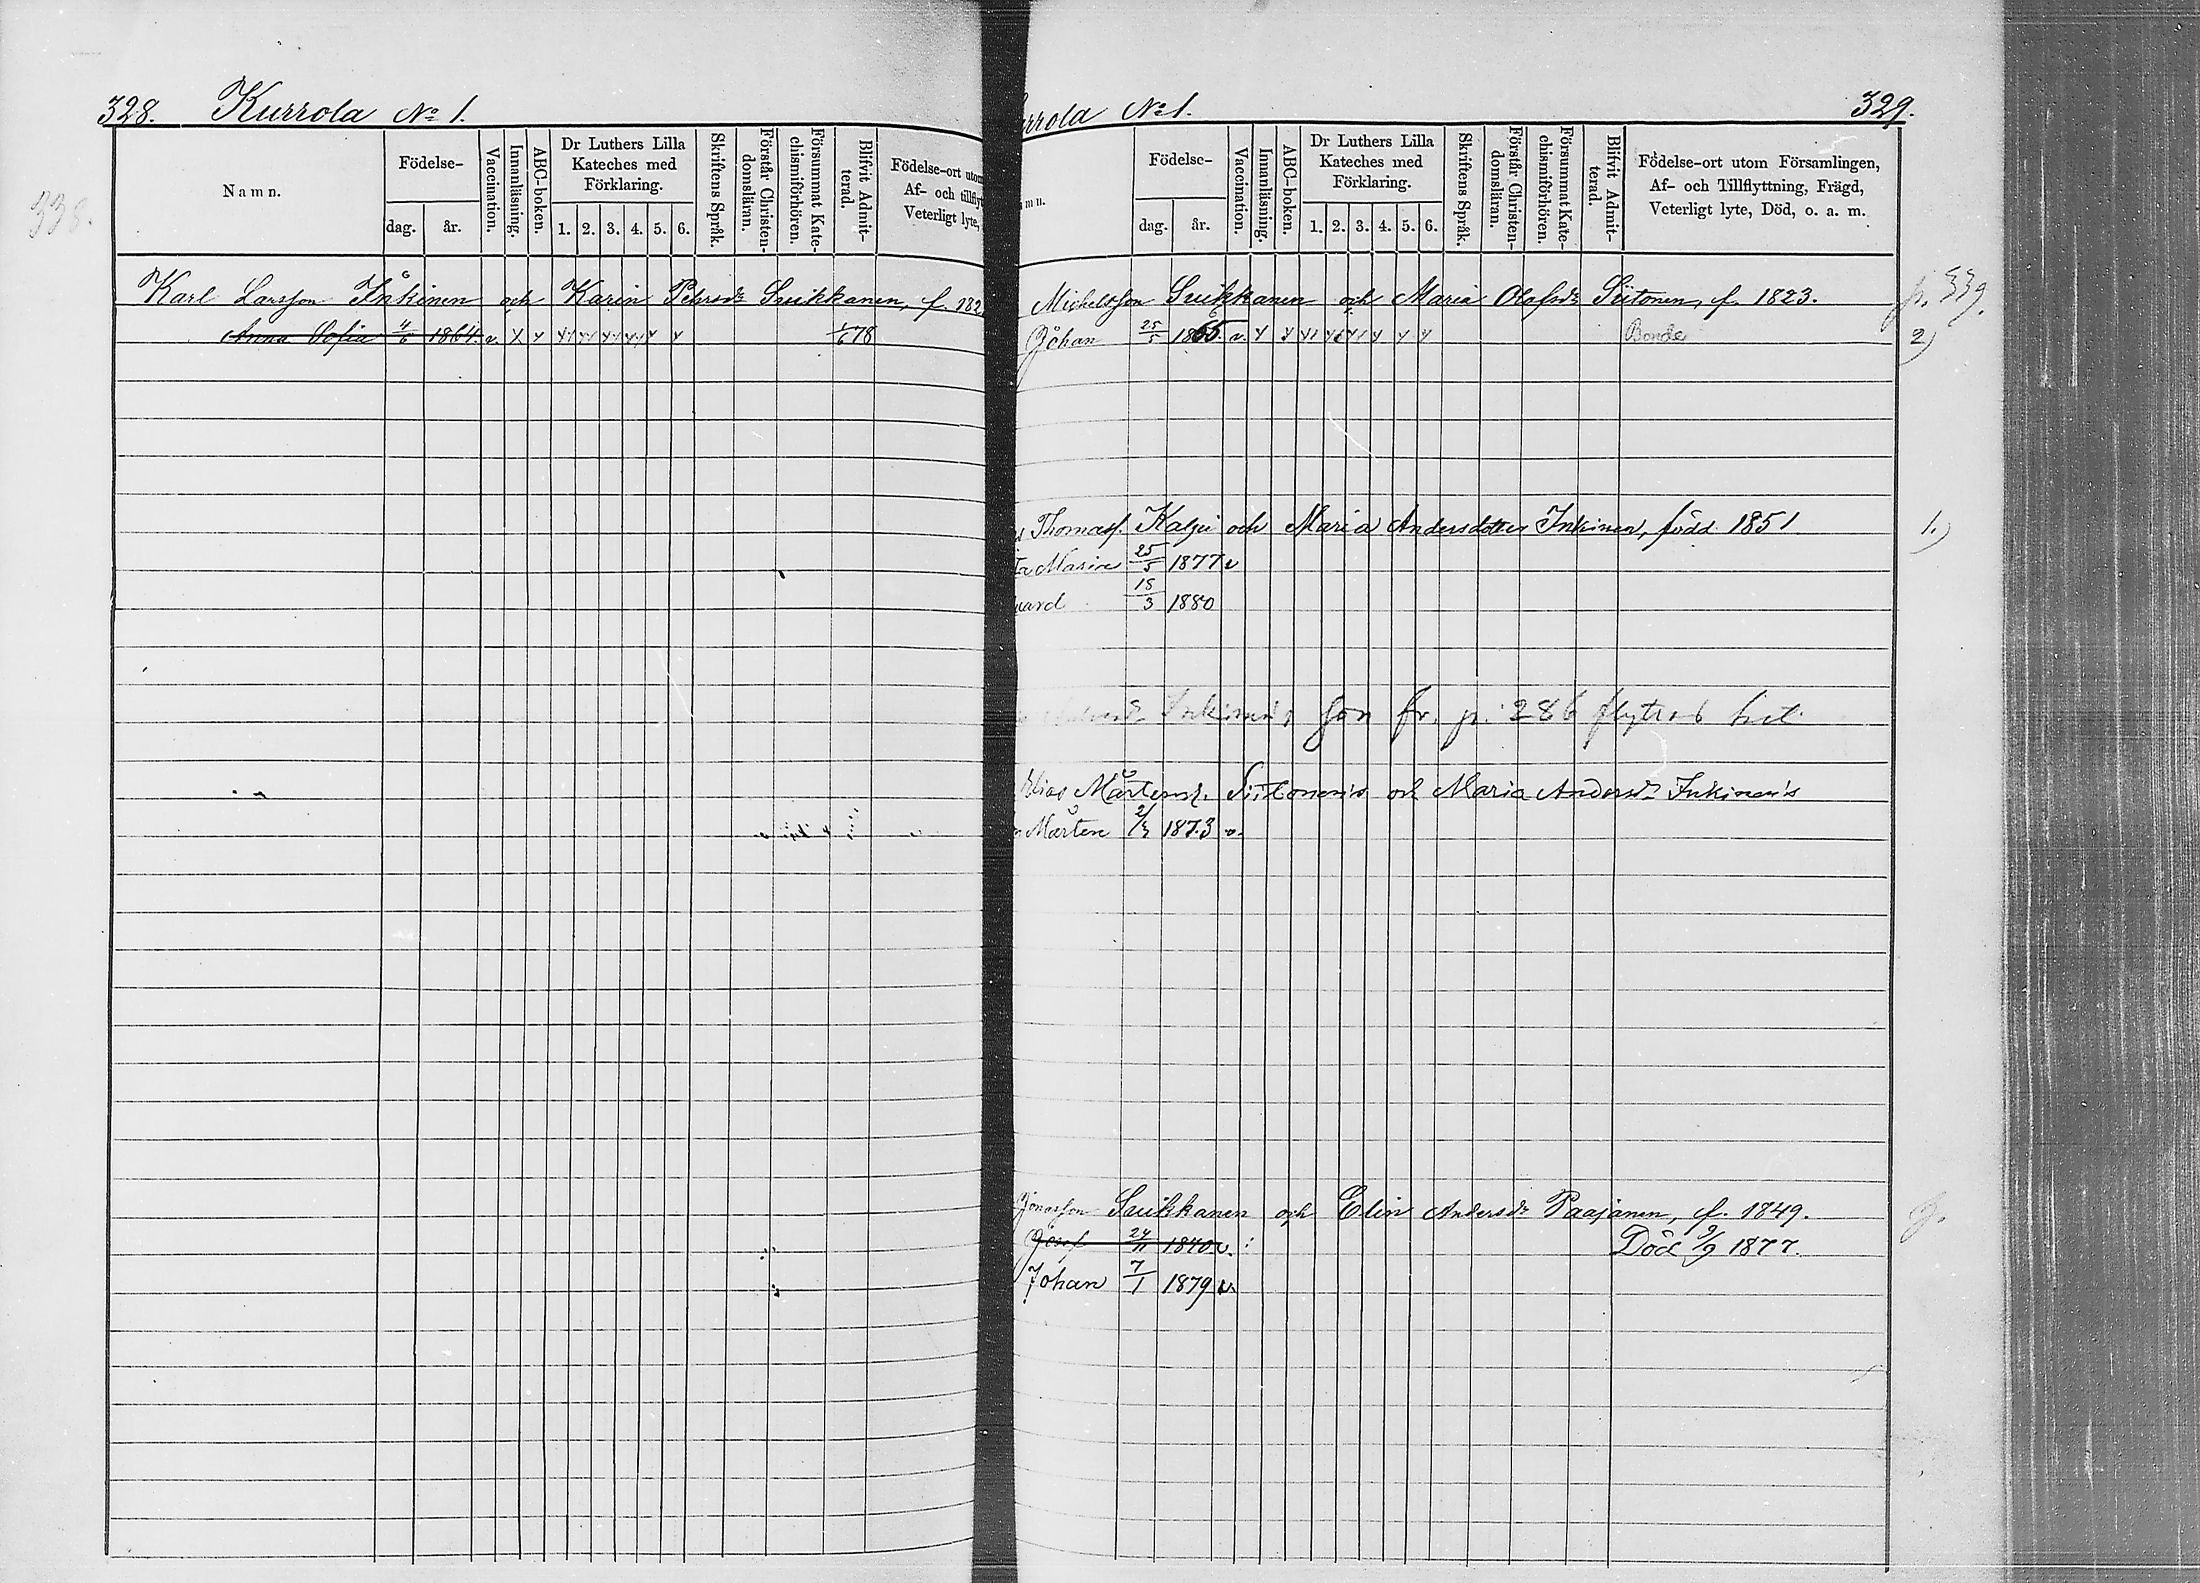 328. Kurrola No 1.
338.
Namn.
Födelse-
dag. år.
Vaccination.
Innanläsning.
ABC-boken.
Dr Luthers Lilla
Kateches med
Förklaring.
1. 2. 3. 4. 5. 6.
Skriftens Språk.
Förstår Christen-
domsläran.
Försummat Kate-
chismiförhören.
Blifvit Admit-
terad.
Födelse-ort utom
Af- och tillflyt
Veterligt lyte,
Karl Larsson Inkinen och Karin Petersdr Suikkanen, f. 182
Anna Sofia 4/6 1864. v. 1/6 78
rrola No 1. 329.
mn.
Födelse-
dag. år.
Vaccination.
Innanläsning.
ABC-boken.
Dr Luthers Lilla
Kateches med
Förklaring.
1. 2. 3. 4. 5. 6.
Skriftens Språk.
Förstår Christen-
domsläran.
Försummat Kate-
chismiförhören.
Blifvit Admit-
terad.
Födelse-ort utom Församlingen,
Af- och Tillflyttning, Frägd,
Veterligt lyte, Död, o. a. m.
Michelsson Suikkanen och Maria Olofsdr Siitonen, f. 1823. p. 339.
Johan 25/5 1865. v. Bonde 2)
Thomasf. och Maria Andersdotter Inkinen, född 1851 1.)
Maria 25/5 1877 v
uard 18/3 1880
Inkinen's son fr. p. 286 flyttat hit
Elias Mårtensf. Siitonen's och Maria Andersdr Inkinen's
Mårten 2/3 1873 v.
Jonasson Suikkanen och Elin Andersdr Paajanen, f. 1849.
Josef 24/11 1840 v. Död 9/9 1877.
Johan 7/1 1879 v.